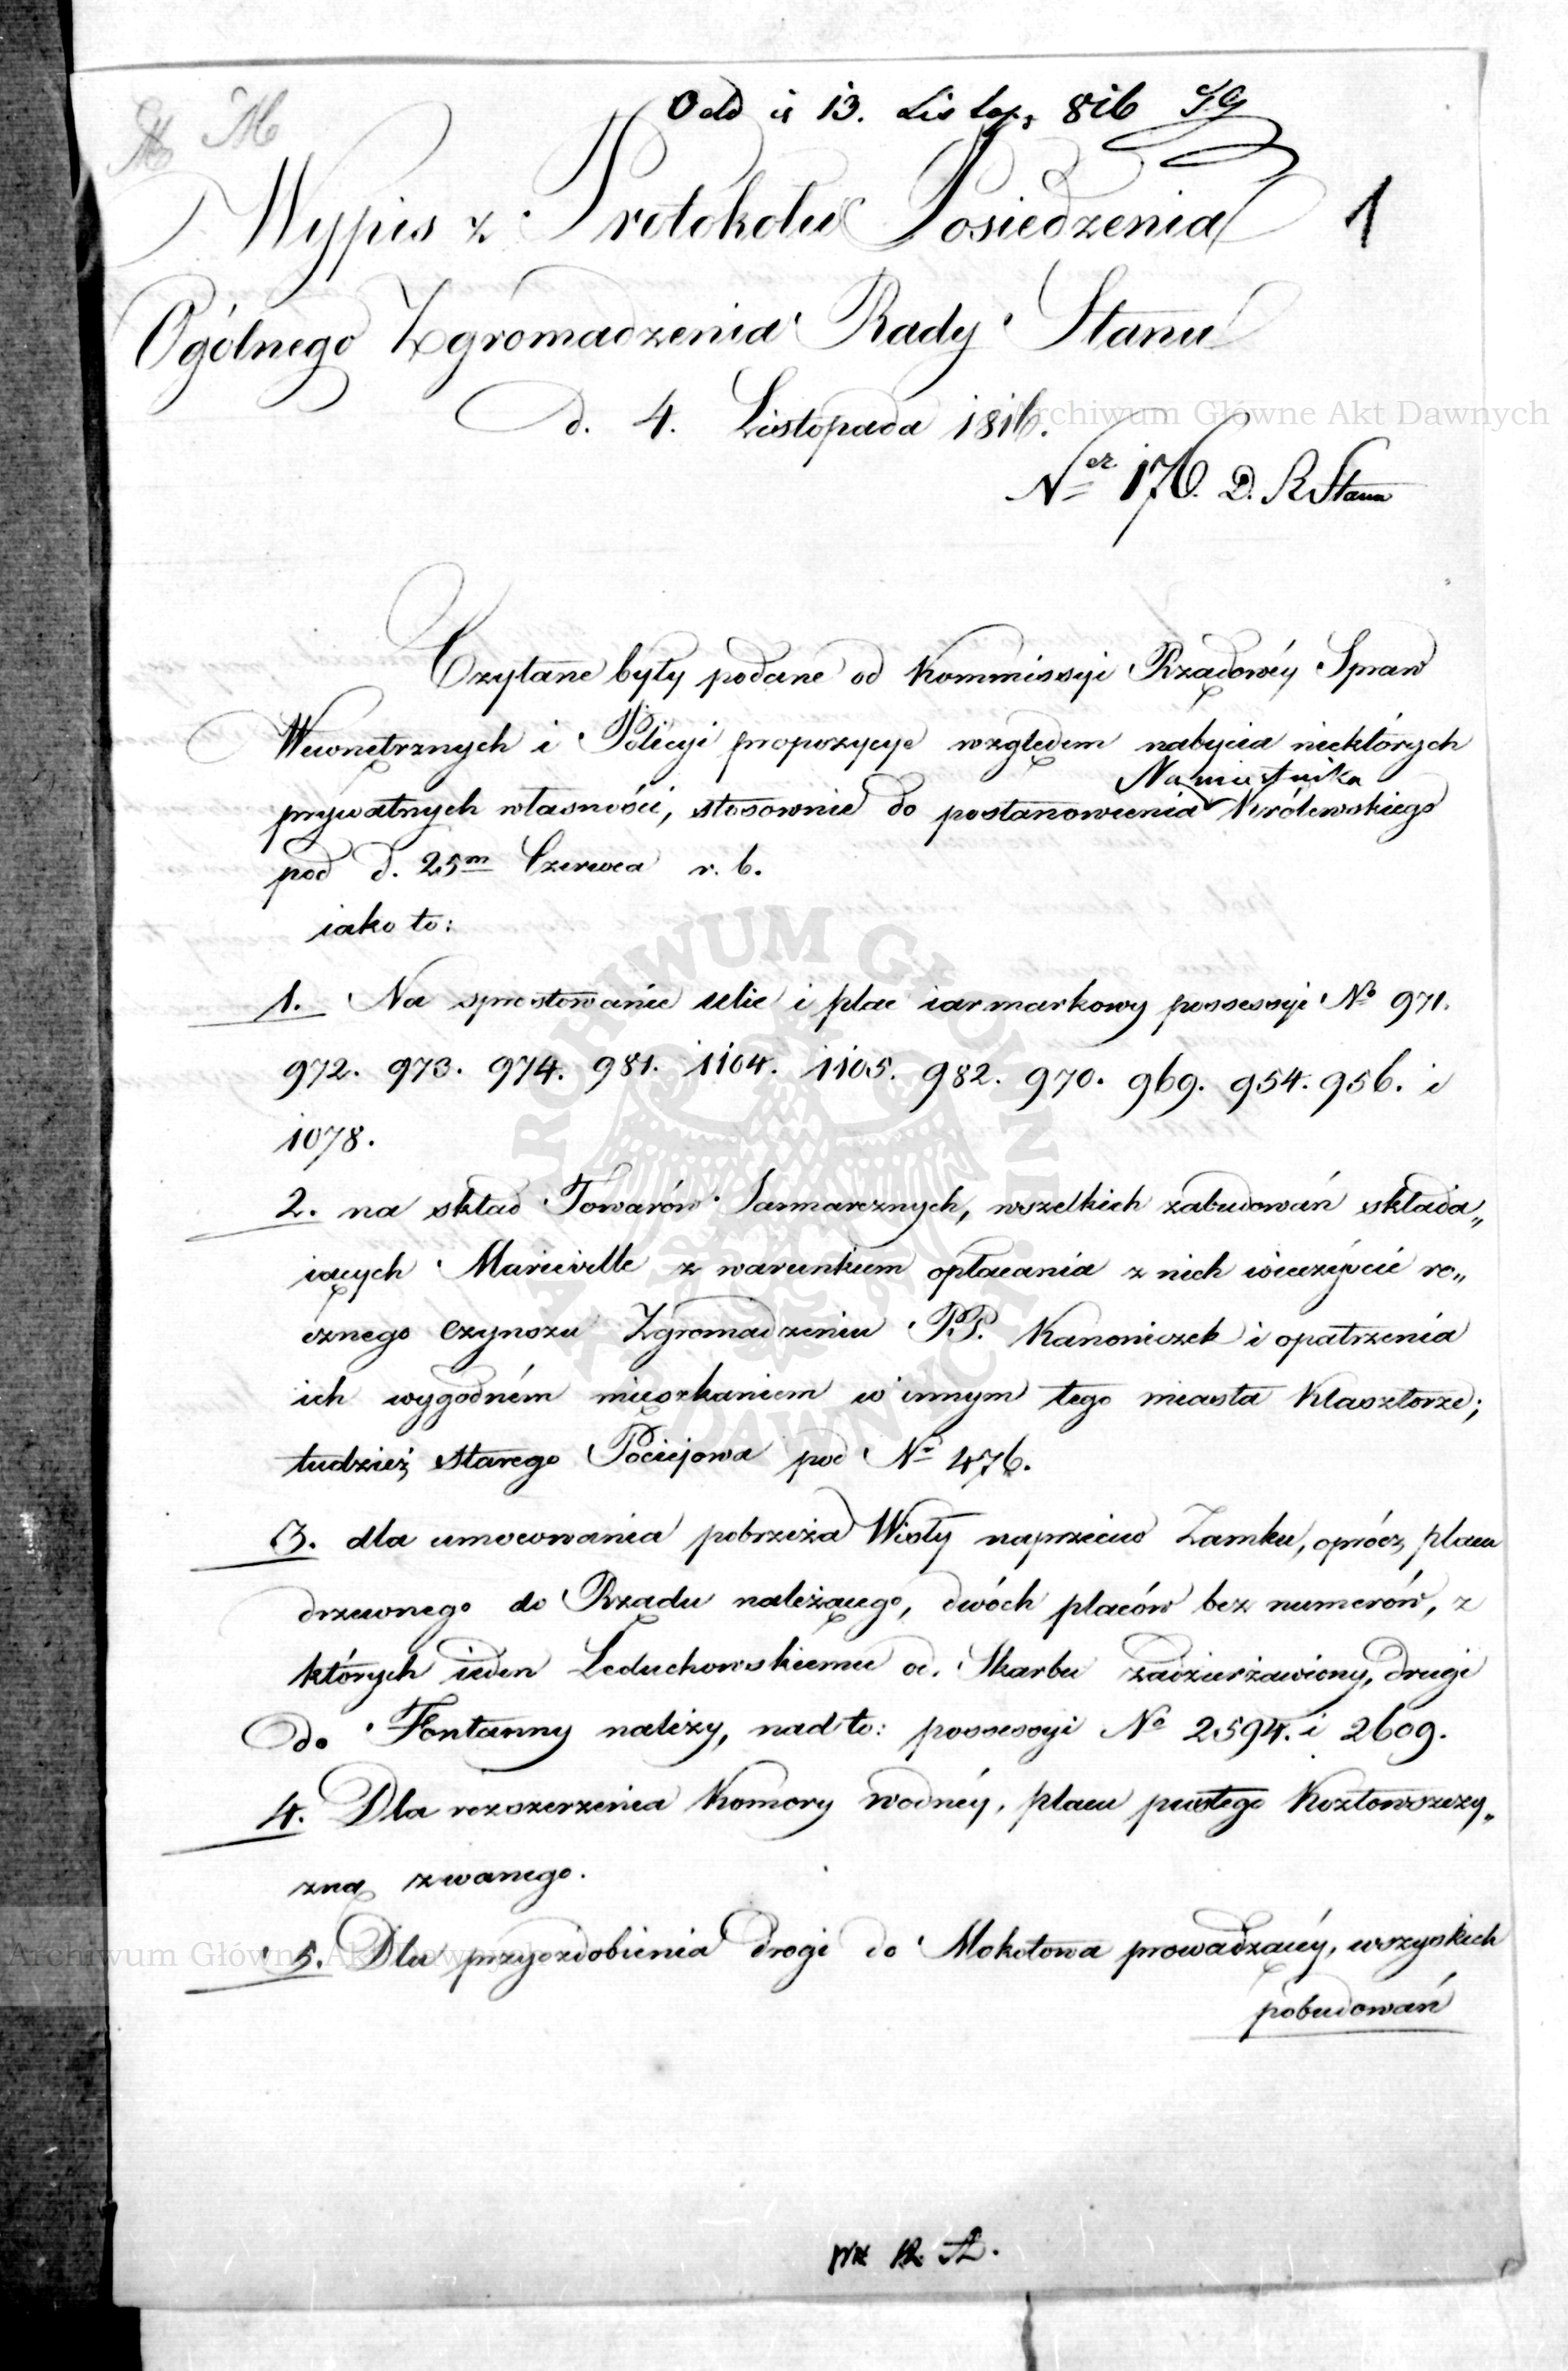 Odd d. 13. Listop. 816
1
Wypis z Protokołu Posiedzenia
Ogólnego Zgromadzenia Rady Stanu
d. 4. Listopada 1816.
Archiwum Główne Akt Dawnych
Ner 176. D. R Stanu
Czytane były podane od Kommissyi Rządowéy Spraw
Wewnętrznych i Policyi propozycye względem nabycia niektórych
Namiestnika
prywatnych własności, stosownie do postanowienia Królewskiego
pod d. 25m Czerwca r. b.
iako to:
1. Na sprostowanie ulic i plac iarmarkowy possessyi No 971.
972. 973. 974. 981. 1104. 1105. 982. 970. 969. 954. 956. i
1078.
2. na skład Towarów Jarmarcznych, wszelkich zabudowań składa„
iących Marieville z warunkiem opłacania z nich wieczyście ro„
cznego czynszu Zgromadzeniu P.P. Kanoniczek i opatrzenia
ich wygodném mieszkaniem w innym tego miasta Klasztorze;
tudzież starego Pociejowa pod No 476.
3. dla umocowania pobrzeża Wisły naprzeciw Zamku, oprócz placu
drzewnego do Rządu należącego, dwóch placów bez numerów, z
których ieden Leduchowskiemu od Skarbu zadzierżawiony, drugi
do Fontanny należy, nadto: possessyi No 2594. i 2609.
4. Dla rozszerzenia Komory wodnéy, placu pustego Kozłowszczy„
zną zwanego.
Archiwum Główne Akt Dawnych
5. Dla przyozdobienia drogi do Mokotowa prowadzącéy, wszyskich
pobudowań
ARCHIWUM GŁÓWNE AKT DAWNYCH